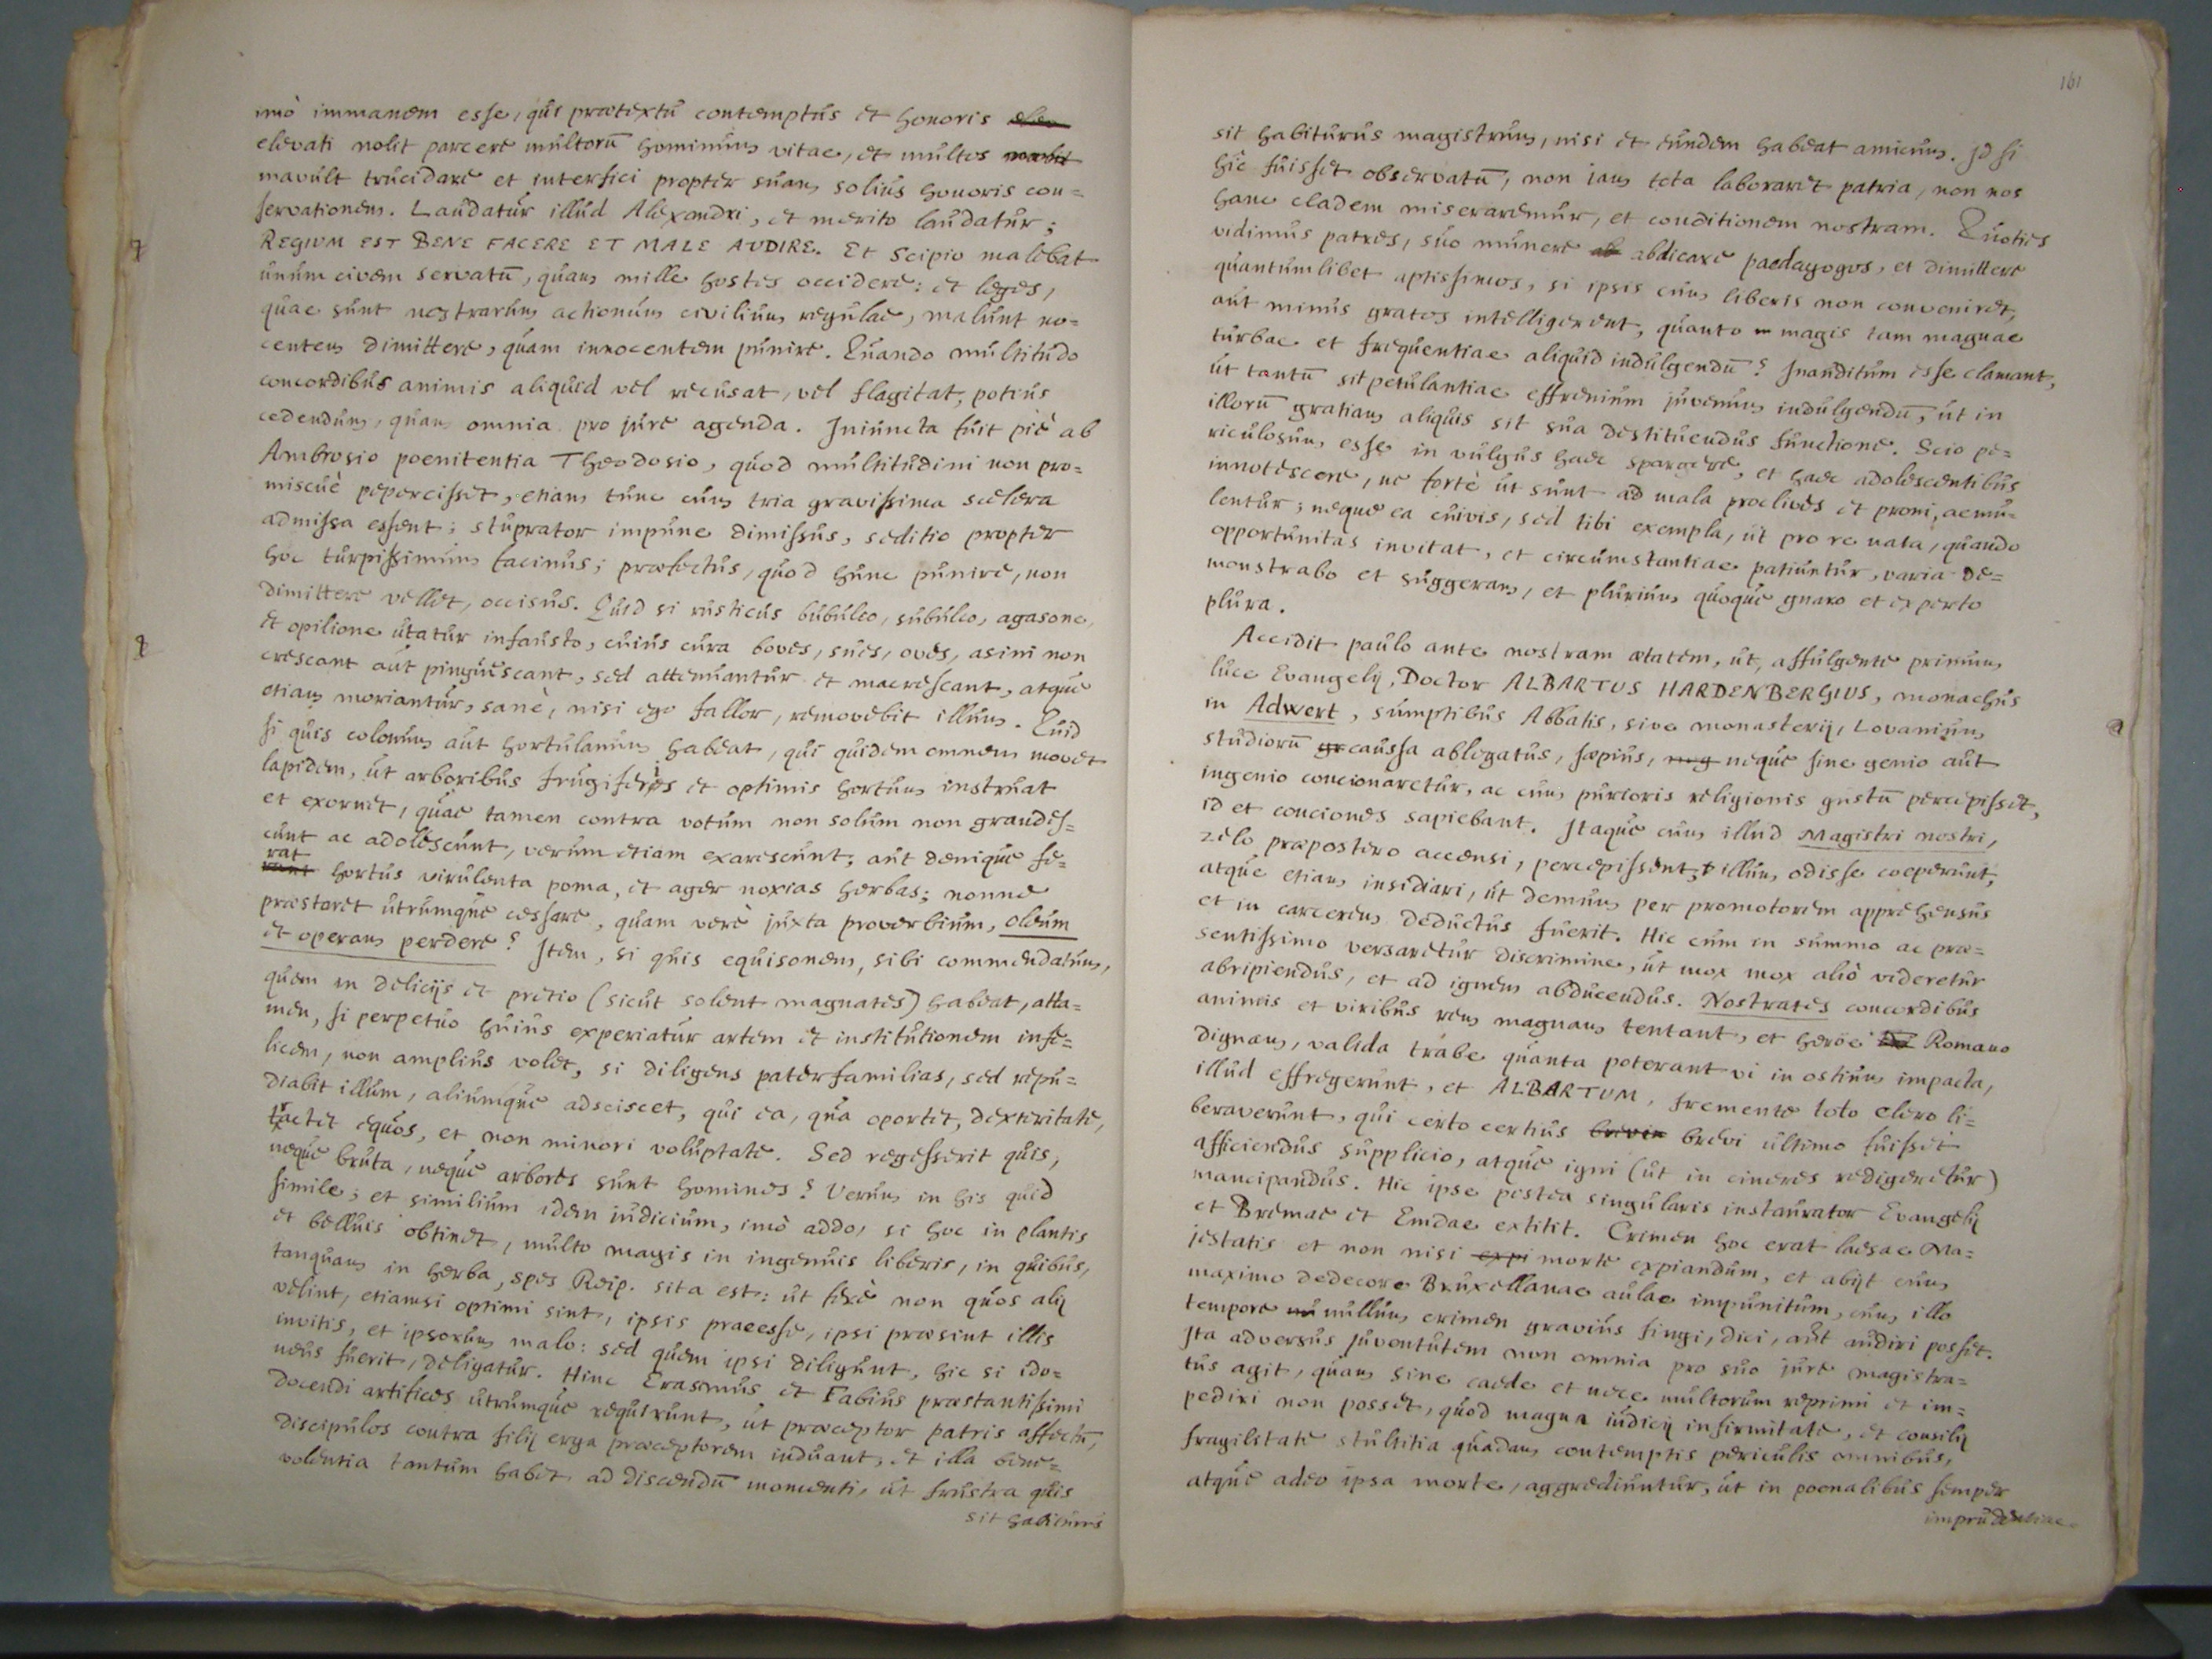 imò immanem esse, qui praetextu contemptus et honoris
elevati nolit parcere multorū hominum vitae, et multos
mavult trucidare et interfici propter suam solius honoris con=
servationem. Laudatur illud Alexandri, et merito laudatur;
REGIUM EST BENE FACERE ET MALE AUDIRE. Et Scipio malebat
unum civem servatū, quam mille hostes occidere: et leges,
quae sunt nostrarum actionum civilium regulae, malunt no=
centem dimittere, quam innocentem punire. Quando multitudo
concordibus animis aliquid vel recusat, vel flagitat, potius
cedendum, quam omnia pro jure agenda. Iniuncta fuit piè ab
Ambrosio poenitentia Theodosio, quod multitudini non pro=
miscuè pepercisset, etiam tunc cum tria gravissima scelera
admissa essent; stuprator impune dimissus, seditio propter
hoc turpissimum facinus; praefectus, quod hunc punire, non
dimittere vellet, occisus. Quid si rusticus bubulco, subulco, agasone,
et opilione utatur infausto, cuius cura boves, sues, oves, asini non
crescant aut pinguescant, sed attenuantur et macrescant, atque
etiam moriantur, sanè, nisi ego fallor, removebit illum. Quid
si quis colonum aut hortulanum habeat, qui quidem omnem movet
lapidem, ut arboribus frugiferis et optimis hortum instruat
et exornet, quae tamen contra votum non solum non grandes=
cunt ac adolescunt, verum etiam exarescunt; aut denique fe=
rat hortus virulenta poma, et ager noxias herbas; nonne
praestaret utrumque cessare, quam verè juxta proverbium, oleum
et operam perdere? Item, si quis equisonem, sibi commendatum,
quem in delicijs et pretio (sicut solent magnates) habeat, atta=
men, si perpetuo huius experiatur artem et institutionem infe=
licem, non amplius volet, si diligens paterfamilias, sed repu=
diabit illum, aliumque adsciscet, qui ea, qua oportet, dexteritate,
tractet equos, et non minori voluptate. Sed regesserit quis,
neque bruta, neque arbores sunt homines? Verum in his quid
simile; et similium idem iudicium, imò addo, si hoc in plantis
et belluis obtinet, multo magis in ingenuis liberis, in quibus,
tanquam in herba, spes Reip. sita est: ut ferè non quos alij
velint, etiamsi optimi sint, ipsis praeesse, ipsi praesint illis
invitis, et ipsorum malo: sed quem ipsi diligunt, hic si ido=
neus fuerit, deligatur. Hinc Erasmus et Fabius praestantissimi
docendi artifices utrumque requirunt, ut praeceptor patris affectū,
discipulos contra filij erga praeceptorem induant, et illa bene=
volentia tantum habet ad discendū momenti, ut frustra quis
sit habiturus
161
sit habiturus magistrum, nisi et eundem habeat amicum. Id si
hic fuisset observatū, non iam tota laboraret patria, non nos
hanc cladem miseraremur, et conditionem nostram. Quoties
vidimus patres, suo munere abdicare paedagogos, et dimittere
quantumlibet aptissimos, si ipsis cum liberis non conveniret,
aut minus gratos intelligerent, quanto magis tam magnae
turbae et frequentiae aliquid indulgendū? Inauditum esse clamant,
ut tantū sit petulantiae effrenium juvenum indulgendū, ut in
illorū gratiam aliquis sit sua destituendus functione. Scio pe=
riculosum esse in vulgus haec spargere, et haec adolescentibus
innotescere, ne fortè ut sunt ad mala proclives et proni, aemu=
lentur; neque ea cuivis, sed tibi exempla, ut pro re nata, quando
opportunitas invitat, et circumstantiae patiuntur, varia de=
monstrabo et suggeram, et plurium quoque gnaro et experto
plura.
Accidit paulo ante nostram aetatem, ut, affulgente primum
luce Evangelij, Doctor ALBARTUS HARDENBERGIUS, monachus
in Adwert, sumptibus Abbatis, sive monasterij, Lovanium
studiorū caussa ablegatus, saepius, neque sine genio aut
ingenio concionaretur, ac cum purioris religionis gustū percepisset,
id et conciones sapiebant. Itaque cum illud Magistri nostri,
zelo praepostero accensi, percepissent, illum odisse coeperunt,
atque etiam insidiari, ut demum per promotorem apprehensus
et in carcerem deductus fuerit. Hic cum in summo ac prae=
sentissimo versaretur discrimine, ut mox mox aliò videretur
abripiendus, et ad ignem abducendus. Nostrates concordibus
animis et viribus rem magnam tentant, et heröe Romano
dignam, valida trabe quanta poterant vi in ostium impacta,
illud effregerunt, et ALBARTUM, fremente toto clero li=
beraverunt, qui certo certius brevi ultimo fuisset
afficiendus supplicio, atque igni (ut in cineres redigeretur)
mancipandus. Hic ipse postea singularis instaurator Evangelij
et Bremae et Emdae extitit. Crimen hoc erat laesae Ma=
jestatis et non nisi morte expiandum, et abijt cum
maximo dedecore Bruxellanae aulae impunitum, cum illo
tempore nullum crimen gravius fingi, dici, aut audiri posset.
Ita adversus juventutem non omnia pro suo jure magistra=
tus agit, quam sine caede et nece multorum reprimi et im=
pediri non posset, quod magna iudicij infirmitate, et consilij
fragilitate stultitia quadam contemptis periculis omnibus,
atque adeo ipsa morte, aggrediuntur, ut in poenalibus semper
imprudentiae